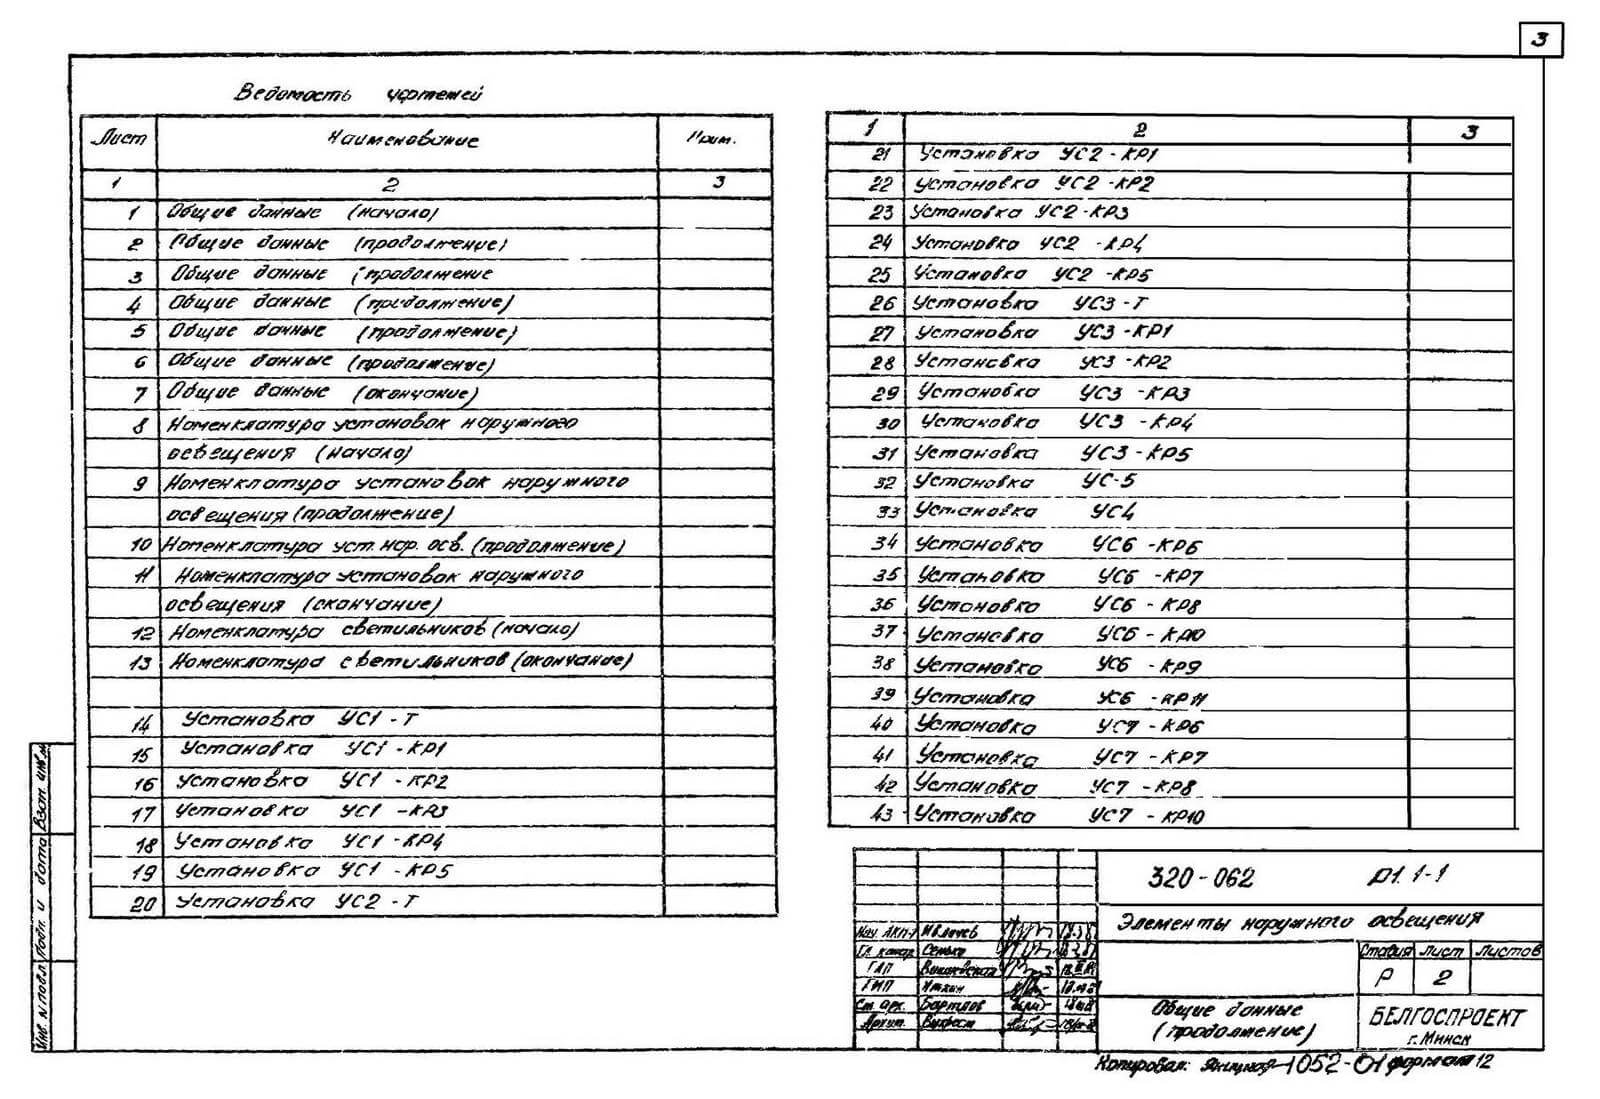 3
Ведомость чертежей
Лист Наименование Прим.
1 2 3
1 Общие данные (начало)
2 Общие данные (продолжение)
3 Общие данные (продолжение
4 Общие данные (продолжение)
5 Общие данные (продолжение)
6 Общие данные (продолжение)
7 Общие данные (окончание)
8 Номенклатура установок наружного
освещения (начало)
9 Номенклатура установок наружного
освещения (продолжение)
10 Номенклатура уст. нар. осв. (продолжение)
11 Номенклатура установок наружного
освещения (окончание)
12 Номенклатура светильников (начало)
13 Номенклатура светильников (окончание)
14 Установка УС1 - Т
15 Установка УС1 - КР1
16 Установка УС1 - КР2
17 Установка УС1 - КР3
18 Установка УС1 - КР4
19 Установка УС1 - КР5
20 Установка УС2 - Т
1 2 3
21 Установка УС2 - КР1
22 Установка УС2 - КР2
23 Установка УС2 - КР3
24 Установка УС2 - КР4
25 Установка УС2 - КР5
26 Установка УС3 - Т
27 Установка УС3 - КР1
28 Установка УС3 - КР2
29 Установка УС3 - КР3
30 Установка УС3 - КР4
31 Установка УС3 - КР5
32 Установка УС-5
33 Установка УС4
34 Установка УС6 - КР6
35 Установка УС6 - КР7
36 Установка УС6 - КР8
37 Установка УС6 - КР10
38 Установка УС6 - КР9
39 Установка УС6 - КР11
40 Установка УС7 - КР6
41 Установка УС7 - КР7
42 Установка УС7 - КР8
43 Установка УС7 - КР10
320-062 Р1. 1-1
Элементы наружного освещения
Нач. АКП-1
Гл. констр. Сенько
ГАП
ГИП Иткин
Ст. арх.
Архит.
Стадия Лист Листов
Р 2
Общие данные
(продолжение)
БЕЛГОСПРОЕКТ
г. Минск
Копировал: 1052-01 формат 12
Инв. № подл. Подп. и дата Взам. инв. №